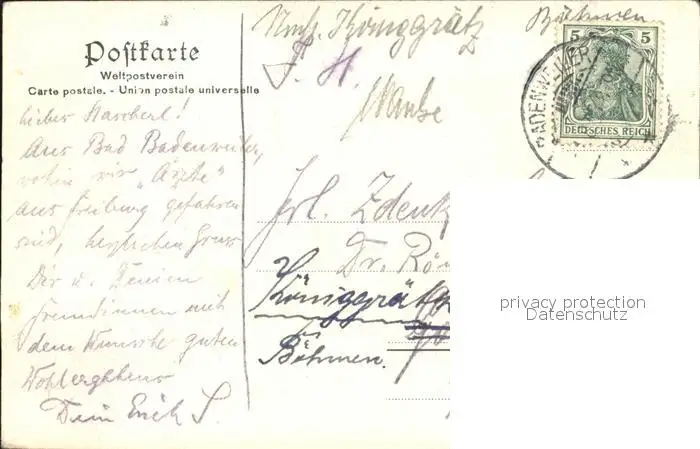 Postkarte
Weltpostverein
Carte postale. - Union postale universelle
Nach Königgrätz Böhmen
5 5
BADENWEILER
DEUTSCHES REICH
Lieber
Aus Bad Badenweiler,
wohin wir „Ärzte"
aus Freiburg gefahren
sind, herzlichen Gruss
Dir u. Deinen
Freundinnen mit
dem Wunsche guten
Wohlergehens
Dein Erich S.
Frl. Zdenk
Dr.
Königgrätz
Böhmen.
privacy protection
Datenschutz